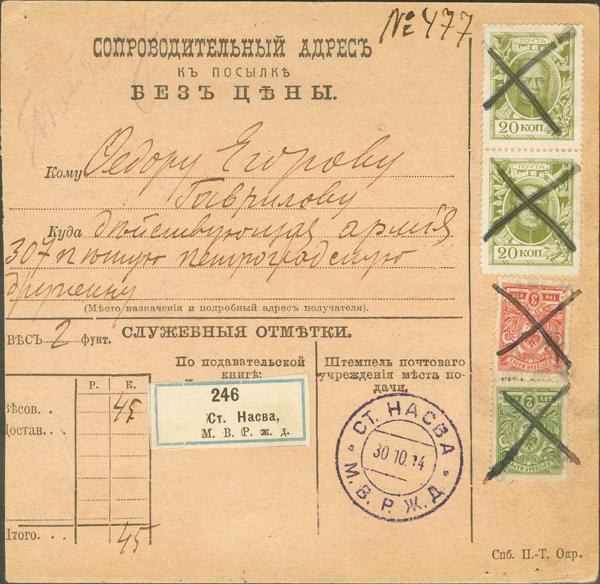 № 477
СОПРОВОДИТЕЛЬНЫЙ АДРЕСЪ
КЪ ПОСЫЛКѢ
БЕЗЪ ЦѢНЫ.
Кому Ѳедору Егорову
Гаврилову
Куда дѣйствующая армія
307 пѣшую петроградскую
дружину
(Мѣсто назначенія и подробный адресъ получателя).
ВѢСЪ 2 фунт.
СЛУЖЕБНЫЯ ОТМѢТКИ.
По подавательской
книгѣ:
Штемпель почтоваго
учрежденія мѣста по-
дачи.
Р. К.
Вѣсов. 45
Достав.
Итого. 45
246
Ст. Насва,
М. В. Р. ж. д.
СТ. НАСВА
30 10. 14
М. В. Р. Ж. Д.
ПОЧТА
20 КОП
ПОЧТА
20 КОП
3
2
Спб. П.-Т. Окр.